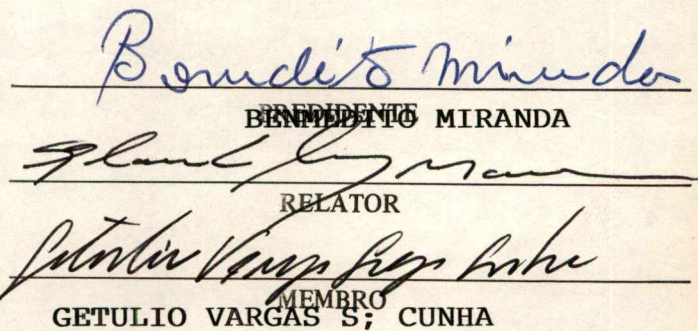 Benedito Miranda
PREDIDENTE
BENEDITO MIRANDA
RELATOR
Getulio Vargas
MEMBRO
GETULIO VARGAS S; CUNHA